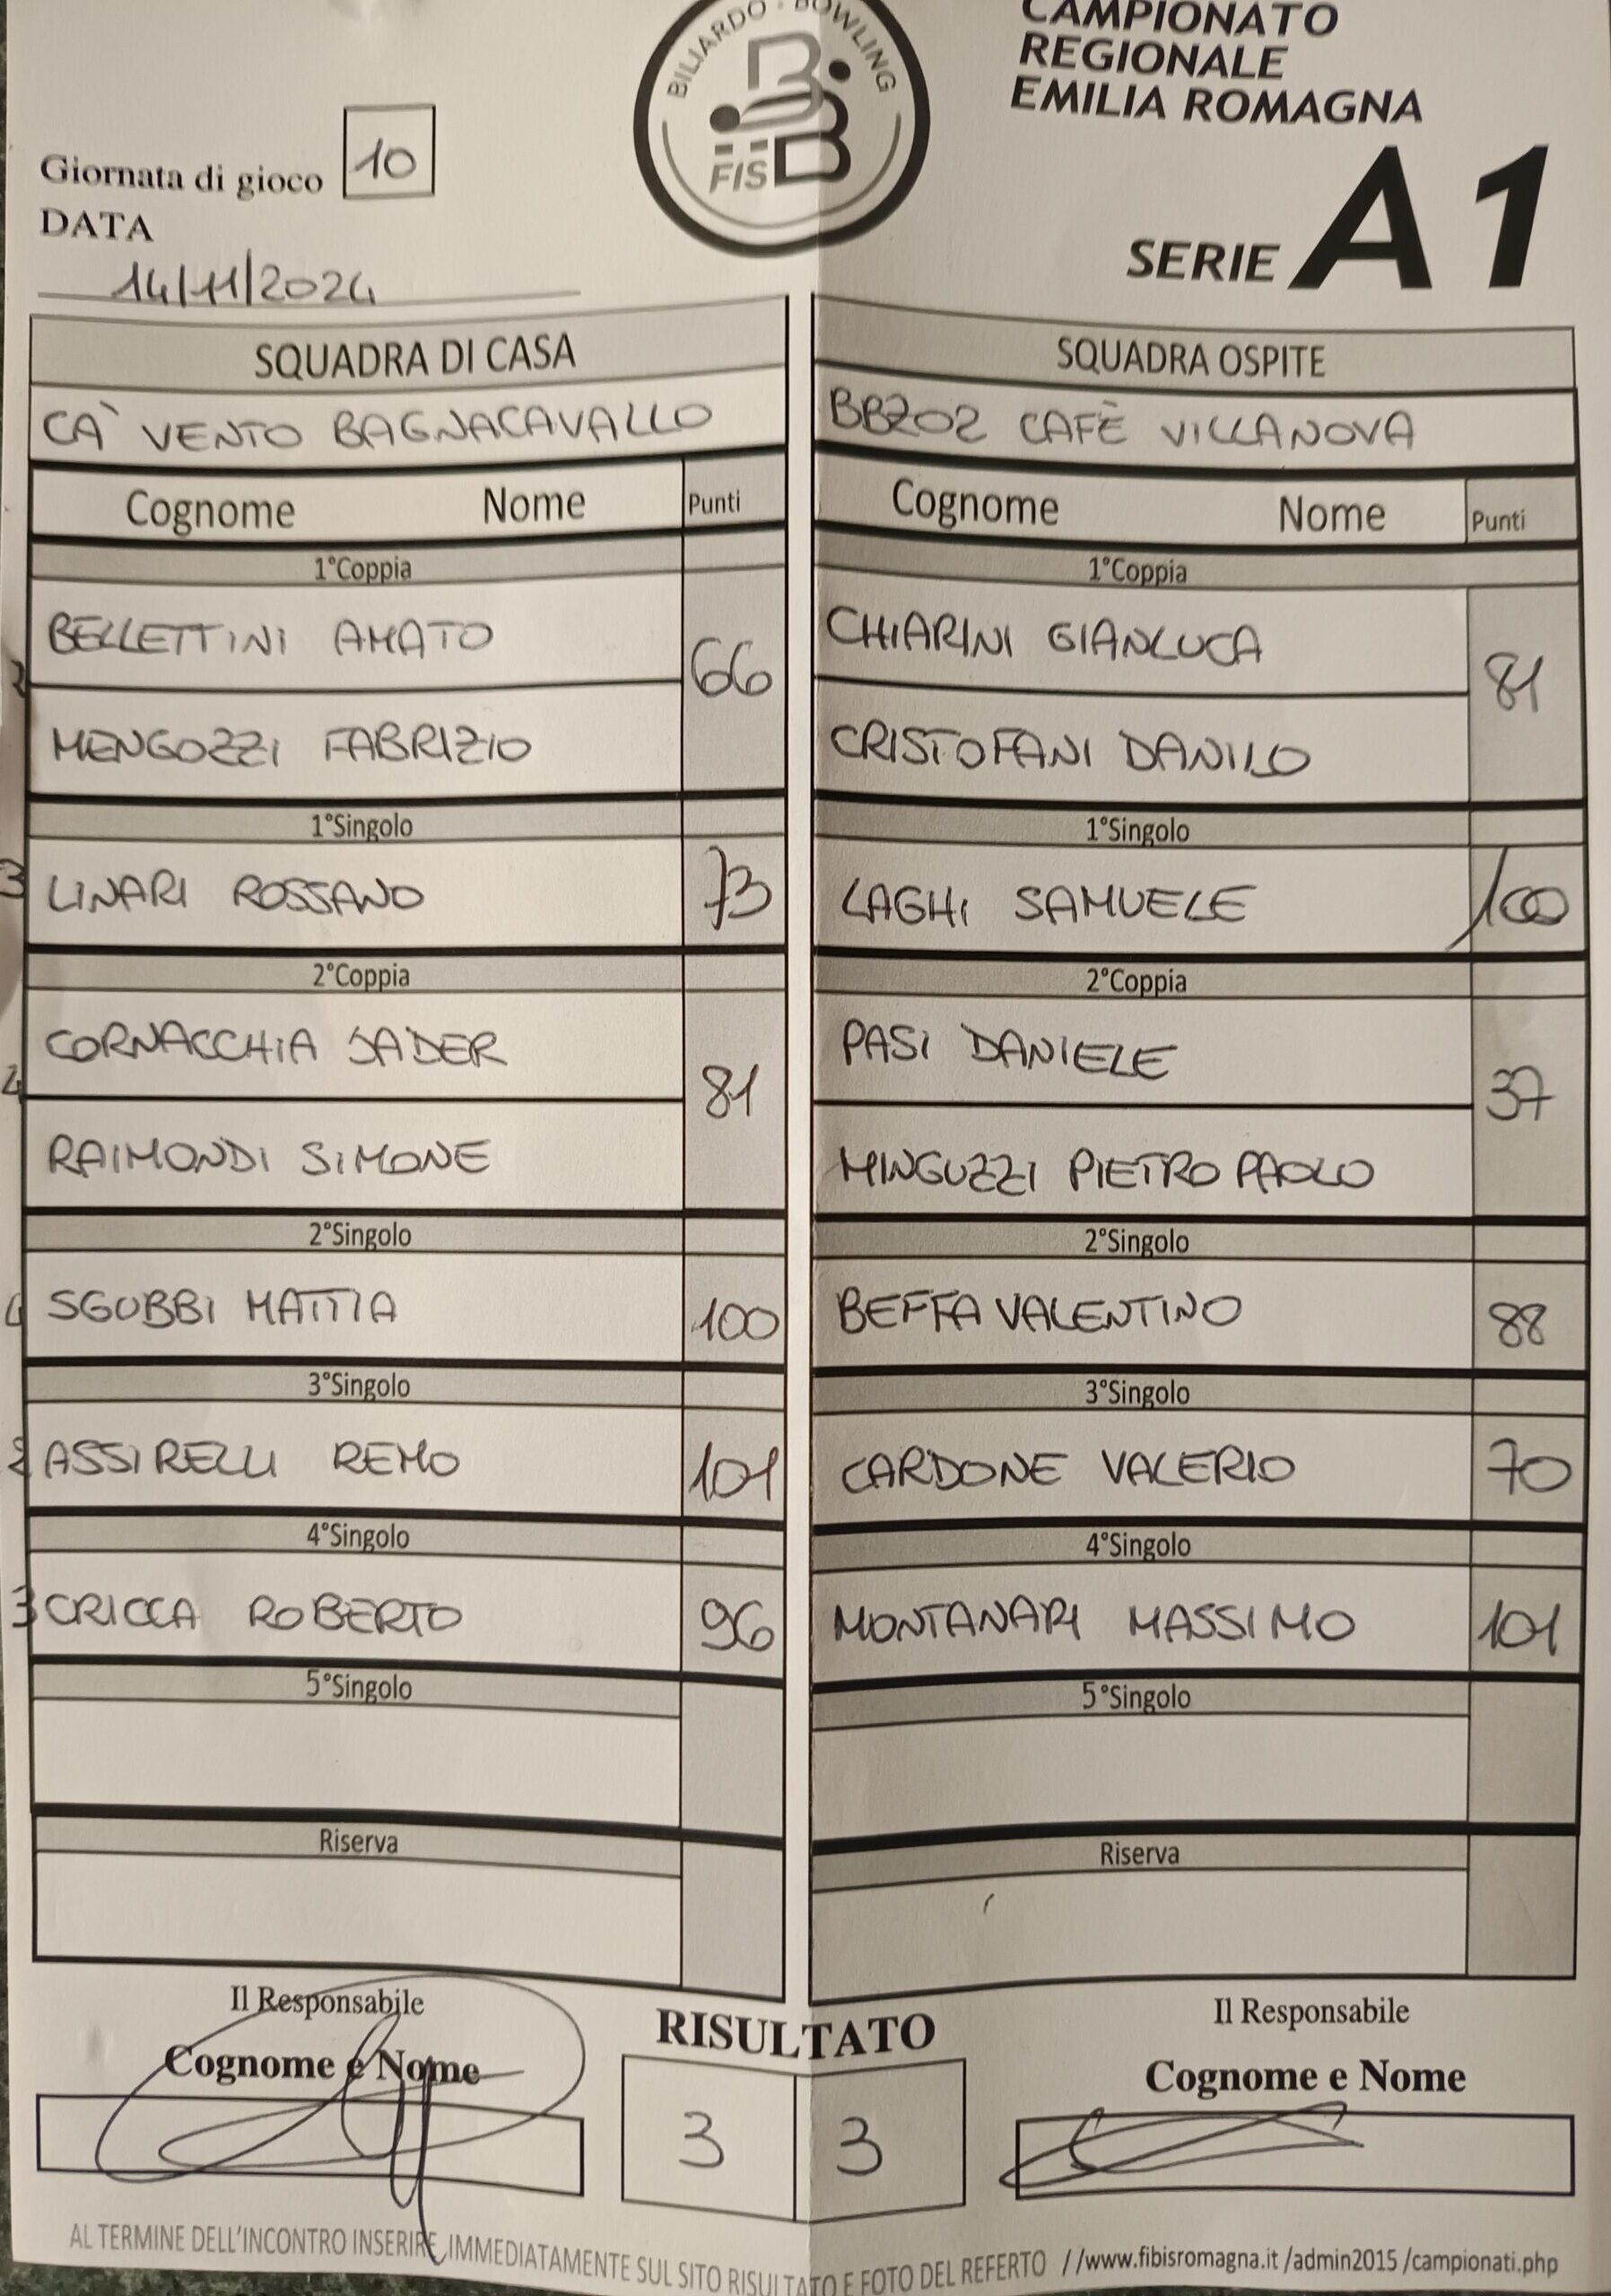 BILIARDO · BOWLING
FISBB
CAMPIONATO
REGIONALE
EMILIA ROMAGNA
SERIE A1
Giornata di gioco 10
DATA
14/11/2024
SQUADRA DI CASA
CA' VENTO BAGNACAVALLO
Cognome Nome Punti
1°Coppia
BELLETTINI AMATO
66
MENGOZZI FABRIZIO
1°Singolo
LINARI ROSSANO 73
2°Coppia
CORNACCHIA JADER
81
RAIMONDI SIMONE
2°Singolo
SGUBBI MATTIA 100
3°Singolo
ASSIRELLI REMO 101
4°Singolo
CRICCA ROBERTO 96
5°Singolo
Riserva
SQUADRA OSPITE
BB202 CAFÈ VILLANOVA
Cognome Nome Punti
1°Coppia
CHIARINI GIANLUCA
81
CRISTOFANI DANILO
1°Singolo
LAGHI SAMUELE 100
2°Coppia
PASI DANIELE
37
MINGUZZI PIETRO PAOLO
2°Singolo
BEFFA VALENTINO 88
3°Singolo
CARDONE VALERIO 70
4°Singolo
MONTANARI MASSIMO 101
5°Singolo
Riserva
Il Responsabile
Cognome e Nome
RISULTATO
3 3
Il Responsabile
Cognome e Nome
AL TERMINE DELL'INCONTRO INSERIRE IMMEDIATAMENTE SUL SITO RISULTATO E FOTO DEL REFERTO //www.fibisromagna.it /admin2015 /campionati.php